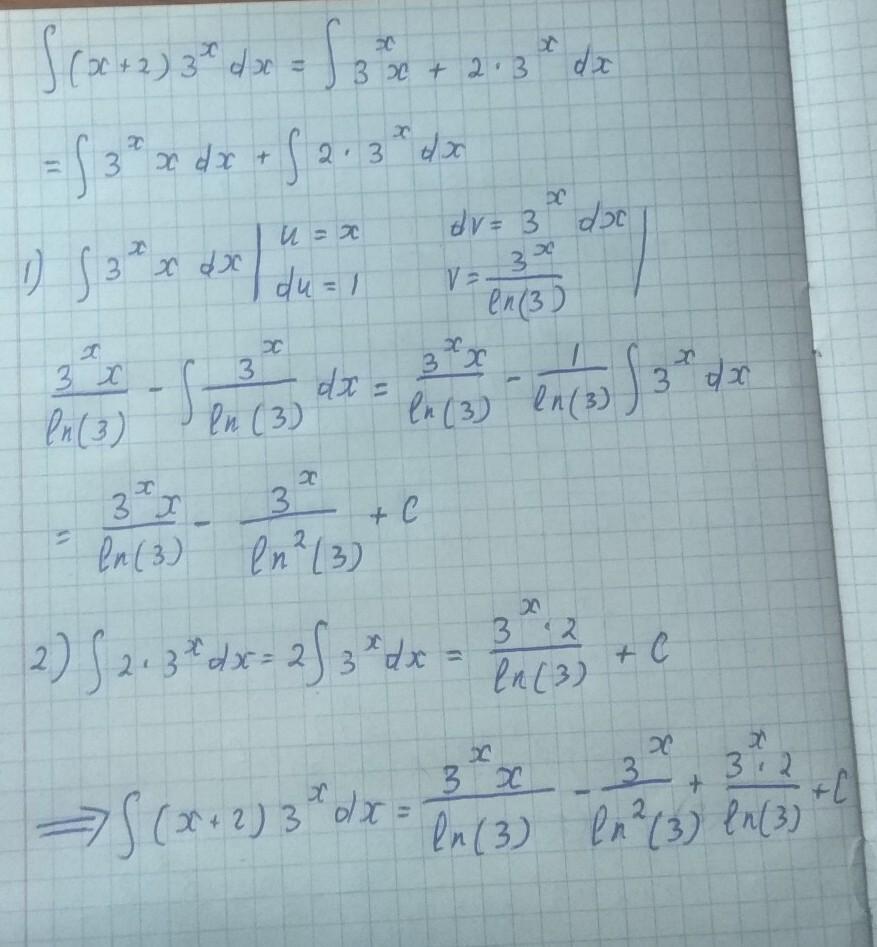 ∫(x+2)3^x dx = ∫3^x x + 2·3^x dx
= ∫3^x x dx + ∫2·3^x dx
1) ∫3^x x dx | u = x dv = 3^x dx |
du = 1 v = 3^x/ln(3)
3^x x/ln(3) - ∫3^x/ln(3) dx = 3^x x/ln(3) - 1/ln(3) ∫3^x dx
= 3^x x/ln(3) - 3^x/ln^2(3) + C
2) ∫2·3^x dx = 2∫3^x dx = 3^x·2/ln(3) + C
⟹ ∫(x+2)3^x dx = 3^x x/ln(3) - 3^x/ln^2(3) + 3^x·2/ln(3) + C